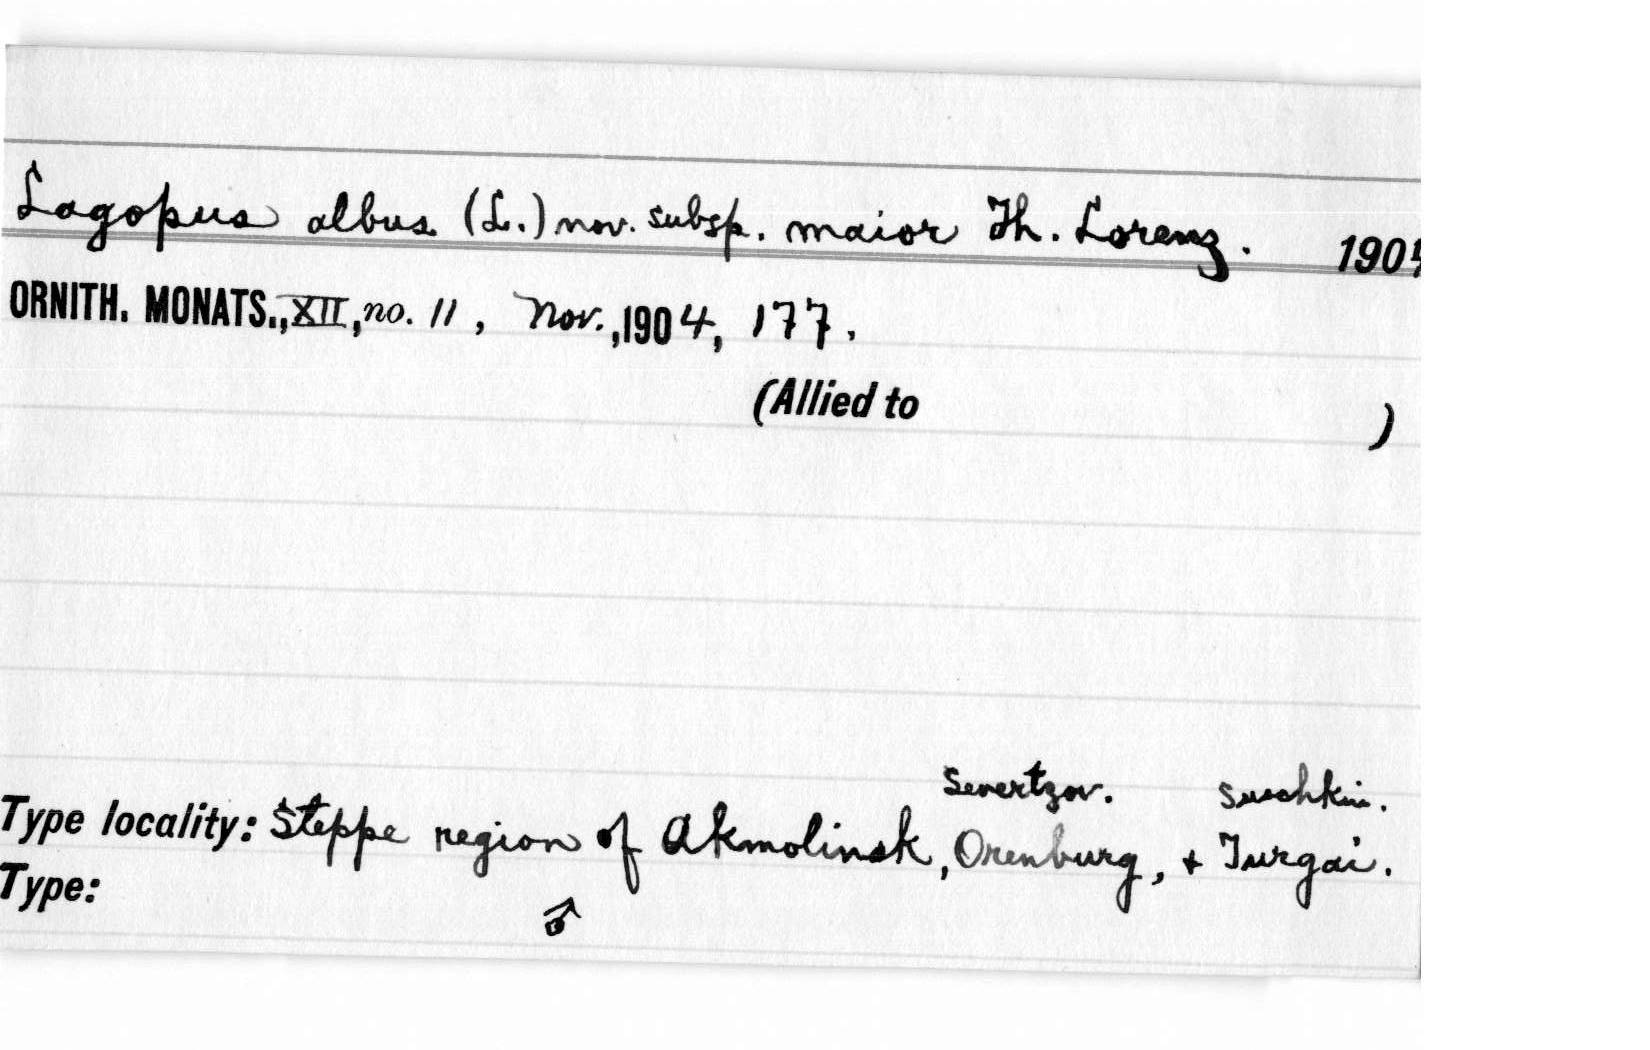 Lagopus albus (L.) nov. subsp. maior Th. Lorenz. 1904
ORNITH. MONATS., XII, no. 11, Nov., 1904, 177.
(Allied to )
Severtzov. Suschkin.
Type locality: Steppe region of Akmolinsk, Orenburg, + Turgai.
Type: ♂